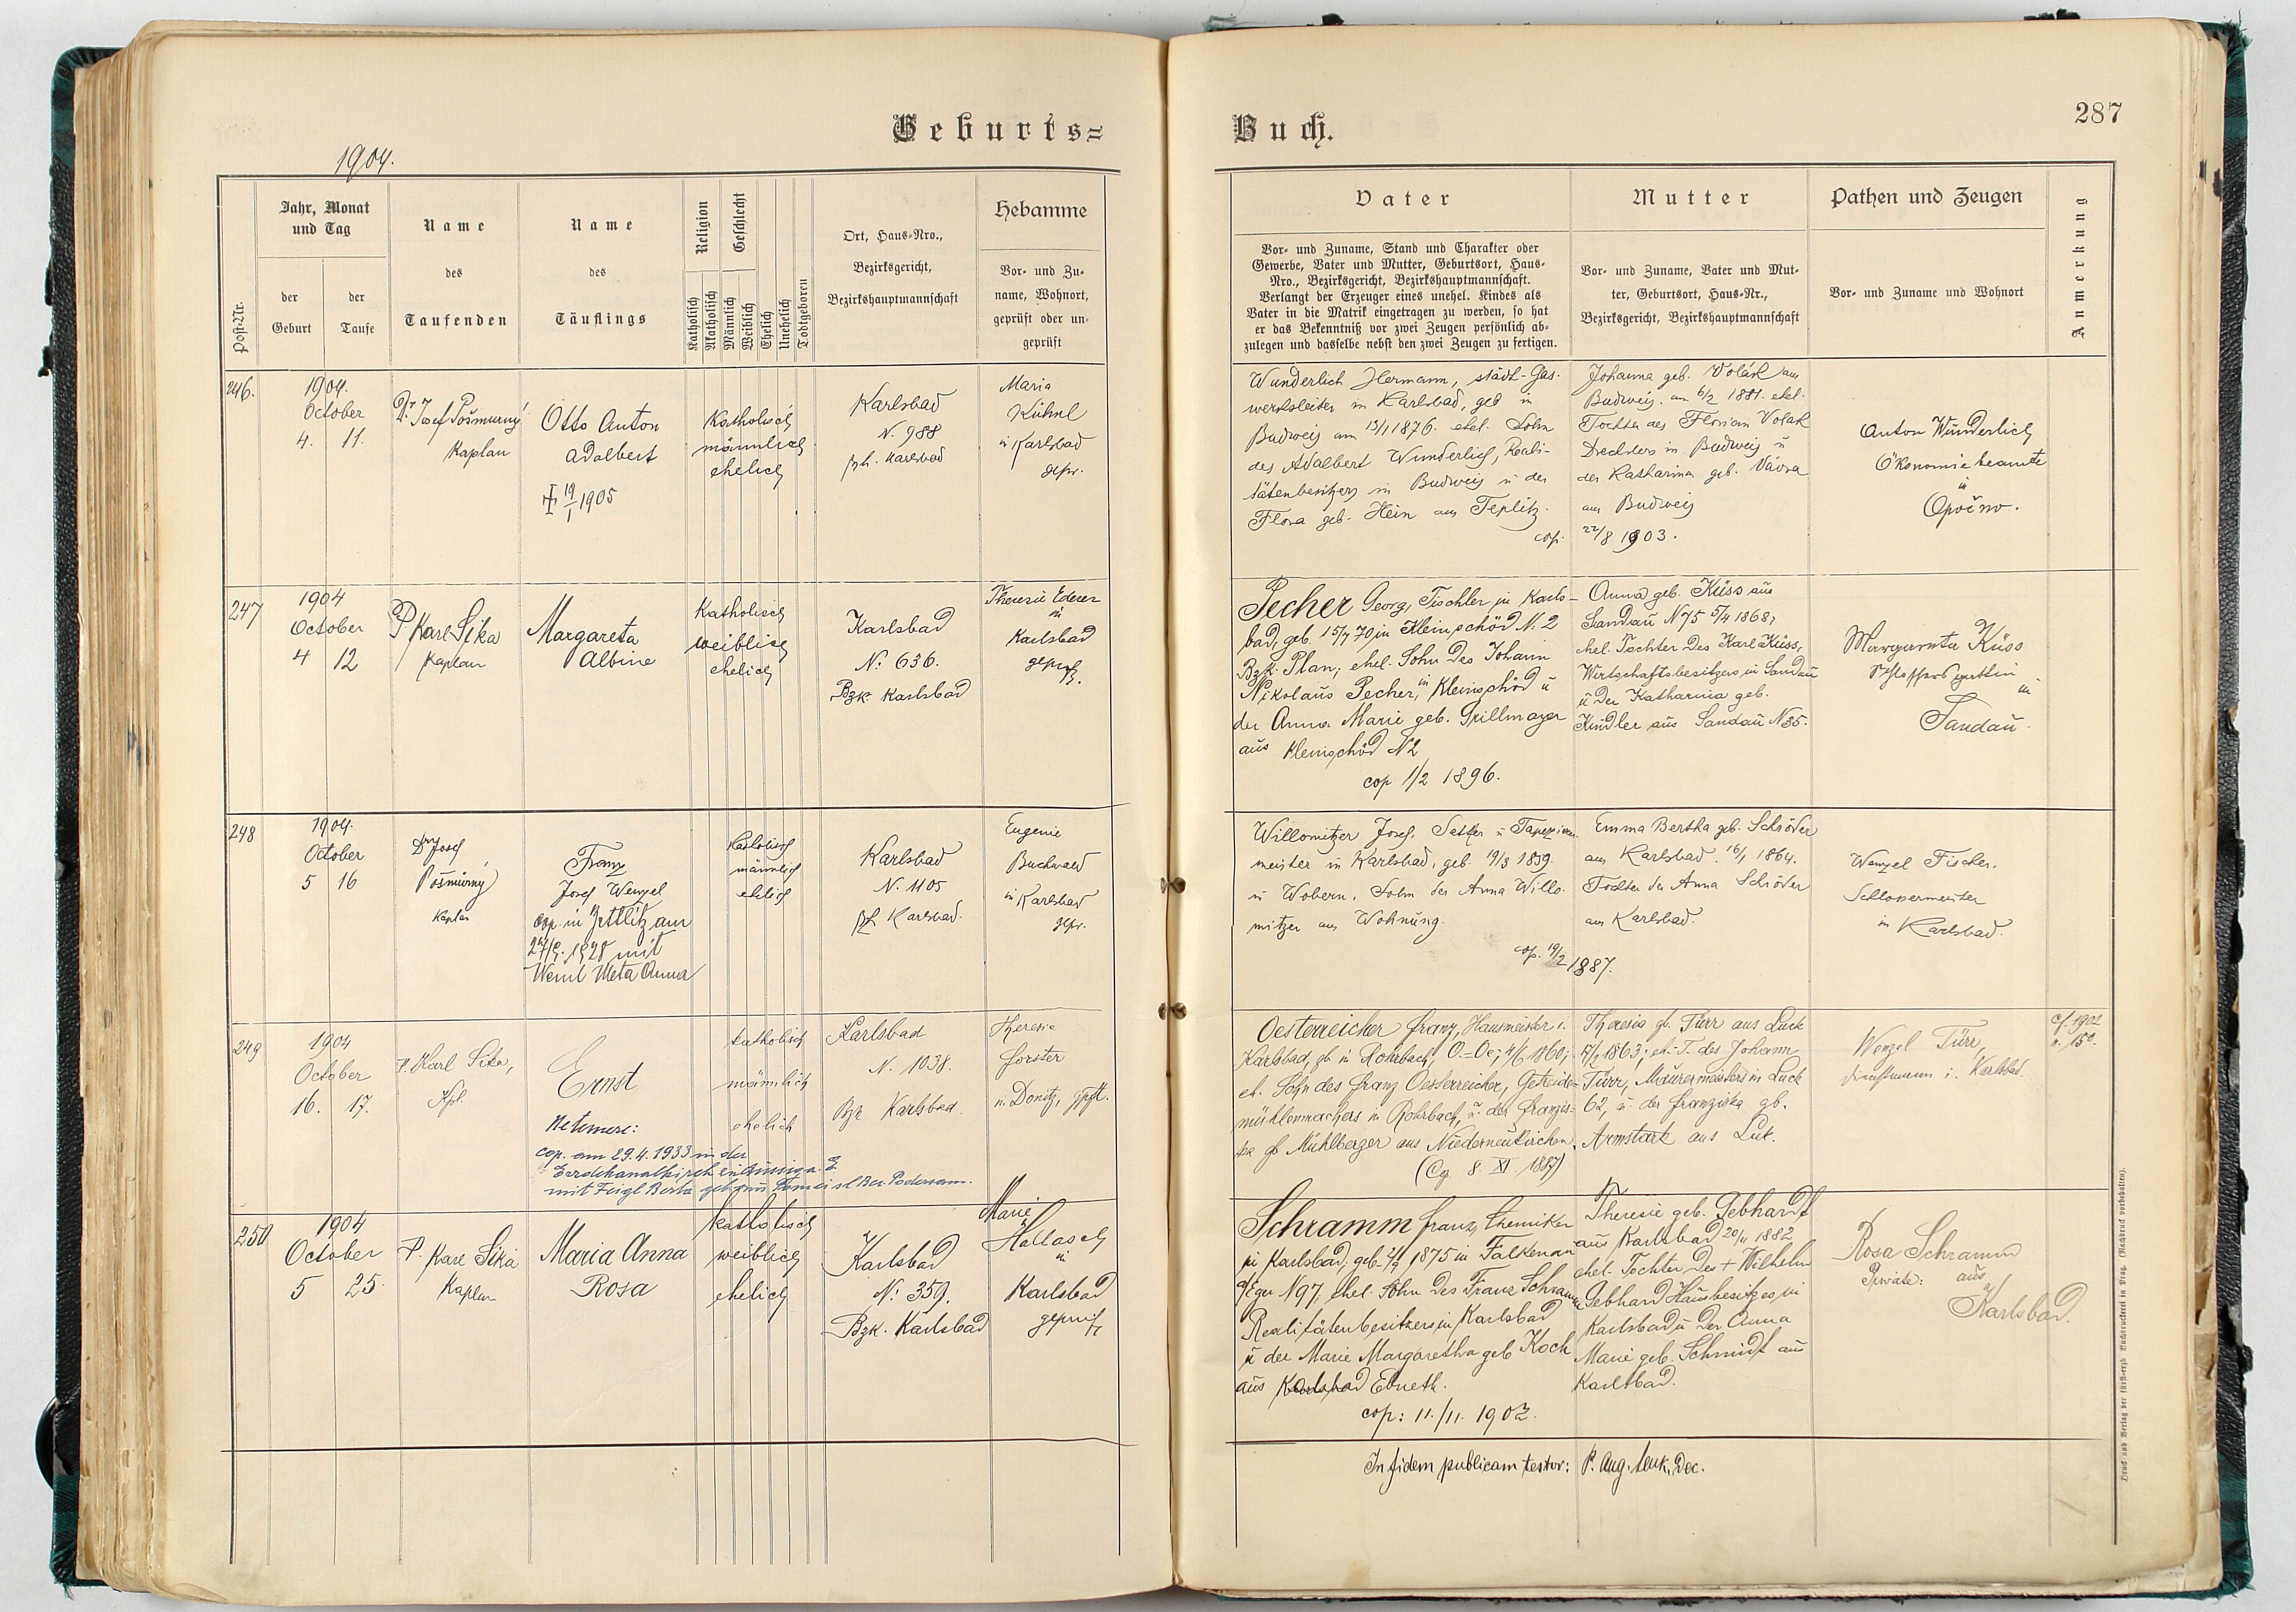 Geburts=
1904.
Post-Nr.
Jahr, Monat
und Tag
der
Geburt
der
Taufe
Name
des
Taufenden
Name
des
Täuflings
Religion
Geschlecht
Katholisch
Akatholisch
Männlich
Weiblich
Ehelich
Unehelich
Todtgeboren
Ort, Haus-Nro.,
Bezirksgericht,
Bezirkshauptmannschaft
Hebamme
Vor- und Zu-
name, Wohnort,
geprüft oder un-
geprüft
246.
1904.
October
4. 11.
Dr. Josef Pošmurný
Kaplan
Otto Anton
Adalbert
19/I 1905
Katholisch
männlich
ehelich
Karlsbad
N. 988
Bzh. Karlsbad
Maria
Kühnl
in Karlsbad
gepr.
247
1904
October
4 12
P Karl Sika
Kaplan
Margareta
Albine
Katholisch
weiblich
ehelich
Karlsbad
N: 636.
Bzk. Karlsbad
Theresie Ederer
in
Karlsbad
geprüft.
248
1904.
October
5 16
Dr Josef
Pošmurný
Kaplan
Franz
Josef Wenzel
cop. in Zettlitz am
1928 mit
Meta Anna
Katholisch
männlich
ehelich
Karlsbad
N. 1105
Bh Karlsbad.
Eugenie
Buchwald
in Karlsbad
gepr.
249
1904
October
16. 17.
P. Karl Sika,
Kpl.
Ernst
Netemere:
cop. am 29.4.1933 in der
mit Feigl Berta
Bez. Podersam.
katholisch
männlich
ehelich
Karlsbad
N. 1038.
Bzk Karlsbad.
Theresia
Forster
in Donitz, gpft.
250
1904
October
5 25.
P. Karl Sika
Kaplan
Maria Anna
Rosa
katholisch
weiblich
ehelich
Karlsbad
N: 359.
Bzk. Karlsbad
Marie
Hollasch
in
Karlsbad
geprüft
Buch.
287
Vater
Vor- und Zuname, Stand und Charakter oder
Gewerbe, Vater und Mutter, Geburtsort, Haus-
Nro., Bezirksgericht, Bezirkshauptmannschaft.
Verlangt der Erzeuger eines unehel. Kindes als
Vater in die Matrik eingetragen zu werden, so hat
er das Bekenntniß vor zwei Zeugen persönlich ab-
zulegen und dasselbe nebst den zwei Zeugen zu fertigen.
Mutter
Vor- und Zuname, Vater und Mut-
ter, Geburtsort, Haus-Nr.,
Bezirksgericht, Bezirkshauptmannschaft
Pathen und Zeugen
Vor- und Zuname und Wohnort
Anmerkung
Wunderlich Hermann, städt-Gas-
werksleiter in Karlsbad, geb in
Budweis am 13/1 1876. ehel. Sohn
des Adalbert Wunderlich, Reali-
tätenbesitzers in Budweis u der
Flora geb. Hein aus Teplitz.
cop. 22/8 1903.
Johanna geb. Volák aus
Budweis. am 6/2 1881. ehel.
Tochter des Florian Volak
Drechslers in Budweis u
der Katharina geb. Vávra
aus Budweis
Anton Wunderlich
Ökonomiebeamte
in
Opočno.
Pecher Georg, Tischler in Karls-
bad, geb. 15/7 70 in Kleinschöd N. 2
Bzk. Plan; ehel. Sohn des Johann
Nikolaus Pecher, in Kleinschöd u
der Anna Marie geb. Grillmayer
aus Kleinschöd N 2
cop 1/2 1896.
Anna geb. Küss aus
Sandau N 75 5/4 1868,
ehel. Tochter des Karl Küss,
Wirtschaftsbesitzers in Sandau
u der Katharina geb.
Kindler aus Sandau N 35.
Margareta Küss
Schlossersgattin
in
Sandau.
Willomitzer Josef, Sattler u Tapezierer-
meister in Karlsbad, geb. 19/3 1859.
in Wobern, Sohn der Anna Willo-
mitzer aus Wohnung.
cop. 19/2 1887.
Emma Bertha geb. Schröder
aus Karlsbad. 16/1 1864.
Tochter der Anna Schröder
aus Karlsbad.
Wenzel Fischer.
Schlossermeister
in Karlsbad.
Oesterreicher Franz, Hausmeister i.
Karlsbad, gb in Rohrbach, O.=Oe; 4/6 1860;
eh. Sohn des Franz Oesterreicher, Getreide-
mühlenmachers in Rohrbach, u. der Franzis-
ka gb Mühlberger aus Niederneukirchen.
(Cop. 8. XI. 1887)
Theresia gb. Türr aus Luck
1863; eh. T. des Johann
Türr, Maurermeisters in Luck
62, u. der Franziska gb.
Armstark aus Luk.
Wenzel Türr,
Dienstmann i. Karlsbad.
cf. 1902
n. 150.
Schramm Franz, Chemiker
in Karlsbad, geb. 1875 in Falkenau
a/Eger N 97, ehel. Sohn des Franz Schramm
Realitätenbesitzers in Karlsbad
u der Marie Margaretha geb Koch
aus Karlsbad Ebneth.
cop: 11./11. 1902.
Theresie geb. Gebhardt
aus Karlsbad 20/11 1882
ehel. Tochter des + Wilhelm
Gebhard Hausbesitzers in
Karlsbad u der Anna
Marie geb. Schmidt aus
Karlsbad.
Rosa Schramm
Private: aus
Karlsbad.
In fidem publicam testor: P. Aug. Dec.
Druck und Verlag der fürst-erzb. Buchdruckerei in Prag. (Nachdruck vorbehalten).